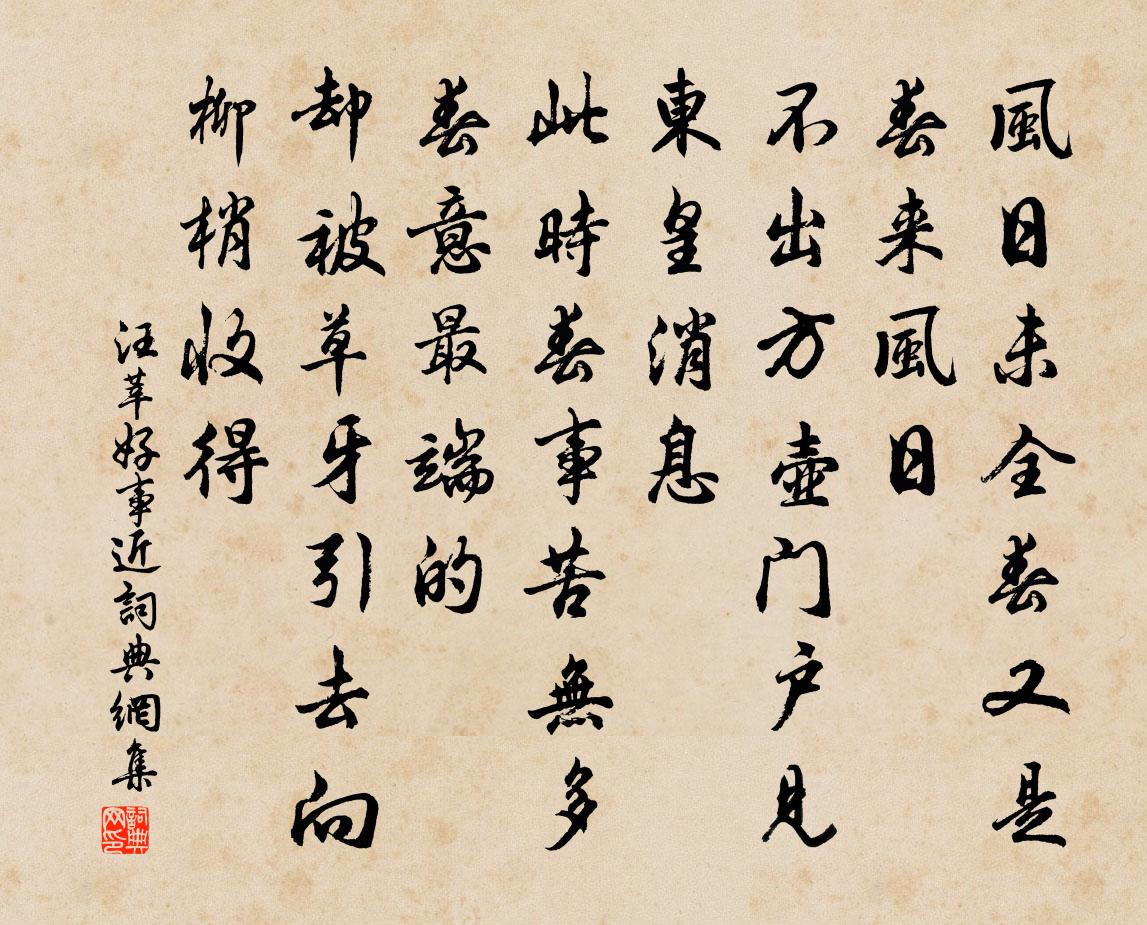 風日未全春又是
春来風日
不出方壺门户見
東皇消息
此時春事苦無多
春意最端的
却被草牙引去向
柳梢收得
汪莘好事近詞典網集
詞典网印